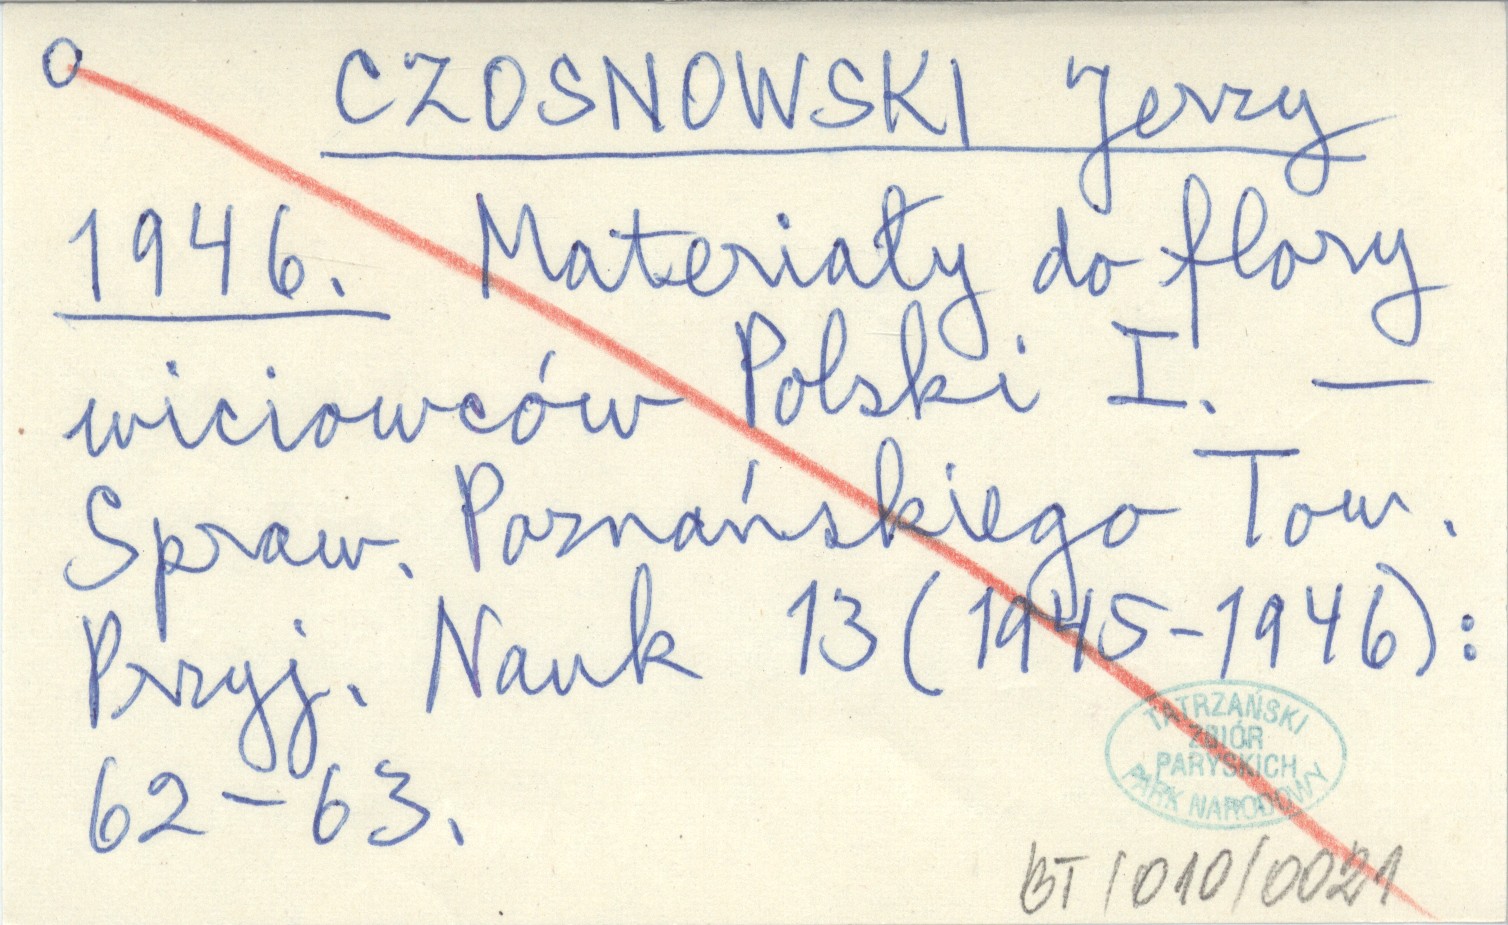 O CZOSNOWSKI Jerzy
1946. Materiały do flory
wiciowców Polski I. —
Spraw. Poznańskiego Tow.
Przyj. Nauk 13 (1945-1946):
62-63.
TATRZAŃSKI
ZBIÓR
PARYSKICH
PARK NARODOWY
BT/010/0021